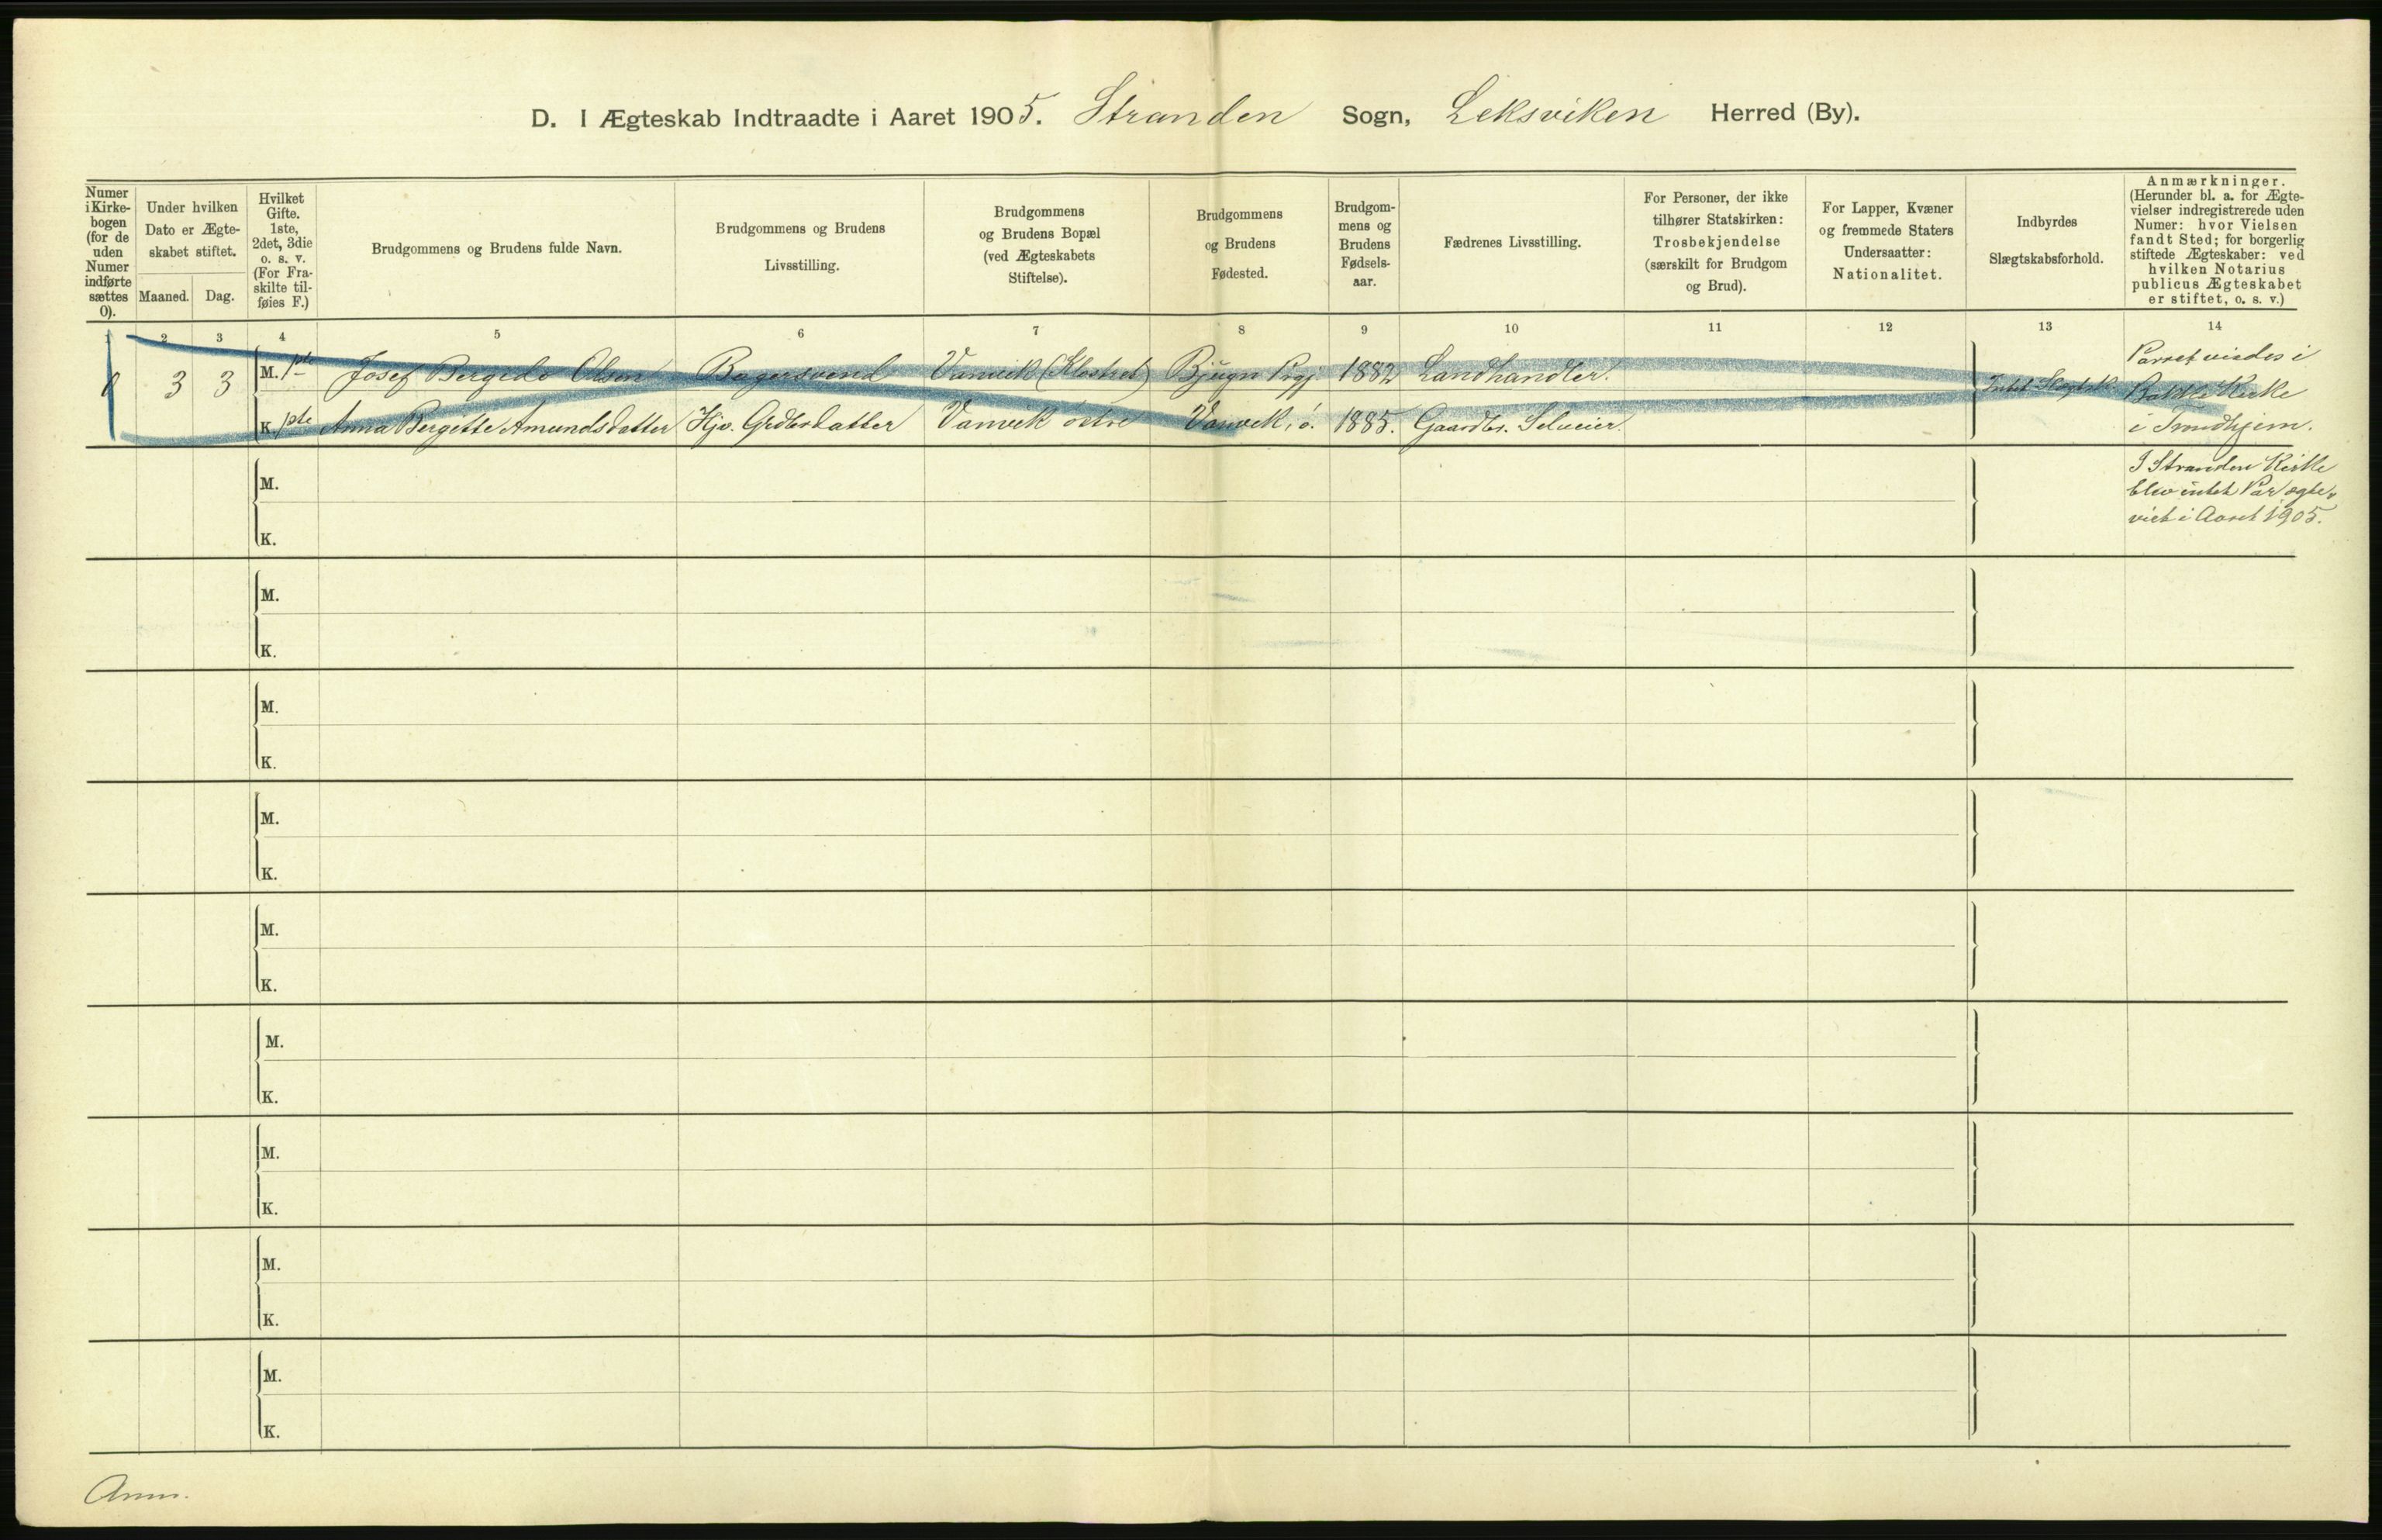 D. I Ægteskab Indtraadte i Aaret 1905. Stranden Sogn, Leksviken Herred (By).
Numer i Kirke- bogen (for de uden Numer indførte sættes 0).
Under hvilken Dato er Ægte- skabet stiftet.
Maaned. Dag.
Hvilket Gifte. 1ste, 2det, 3die o. s. v. (For Fra- skilte til- føies F.)
Brudgommens og Brudens fulde Navn.
Brudgommens og Brudens Livsstilling.
Brudgommens og Brudens Bopæl (ved Ægteskabets Stiftelse).
Brudgommens og Brudens Fødested.
Brudgom- mens og Brudens Fødsels- aar.
Fædrenes Livsstilling.
For Personer, der ikke tilhører Statskirken: Trosbekjendelse (særskilt for Brudgom og Brud).
For Lapper, Kvæner og fremmede Staters Undersaatter: Nationalitet.
Indbyrdes Slægtskabsforhold.
Anmærkninger. (Herunder bl. a. for Ægte- vielser indregistrerede uden Numer: hvor Vielsen fandt Sted; for borgerlig stiftede Ægteskaber: ved hvilken Notarius publicus Ægteskabet er stiftet, o. s. v.)
1 2 3 4 5 6 7 8 9 10 11 12 13 14
0 3 3 M. 1ste Josef Bergedo Olsen Bagersvend Vanvik (Klostret) Bjugn Prgj. 1882 Landhandler. Intet Slægtsk. Parret viedes i Bakke Kirke
K. 1ste Anna Bergitte Amundsdatter Hjv. Grdbrdatter Vanvik østre Vanvik, ø. 1885. Gaardbr. Selveier. i Trondhjem.
M. I Stranden Kirke
blev intet Par ægte-
K. viet i Aaret 1905.
M.
K.
M.
K.
M.
K.
M.
K.
M.
K.
M.
K.
M.
K.
M.
K.
Anm.